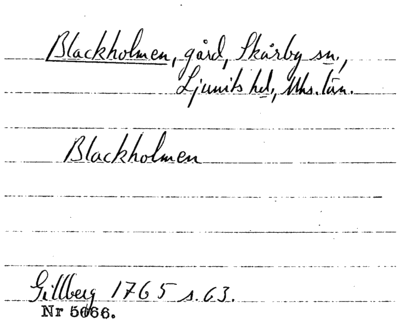 Blackholmen, gård, Skårby sn.,
Ljunits hd, Mhs. län.
Blackholmen
Gillberg 1765 s. 63.
Nr 5666.